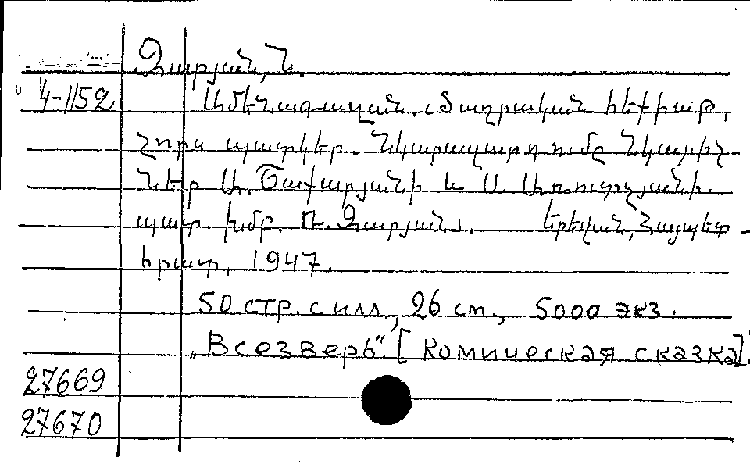 Զարյան, Ն.
4-1152 Ամենագազան. Ծաղրական հեքիաթ,
չորս պատկեր. Նկարազարդումը նկարիչ-
ներ Ա. Ծափարյանի և Ա.
պատ. խմբ. Ռ. Զարյան. Երևան, Հայպետ-
հրատ, 1947.
50 стр. с илл, 26 см, 5000 экз.
„Всезверь“ [Комическая сказка].
27669
27670